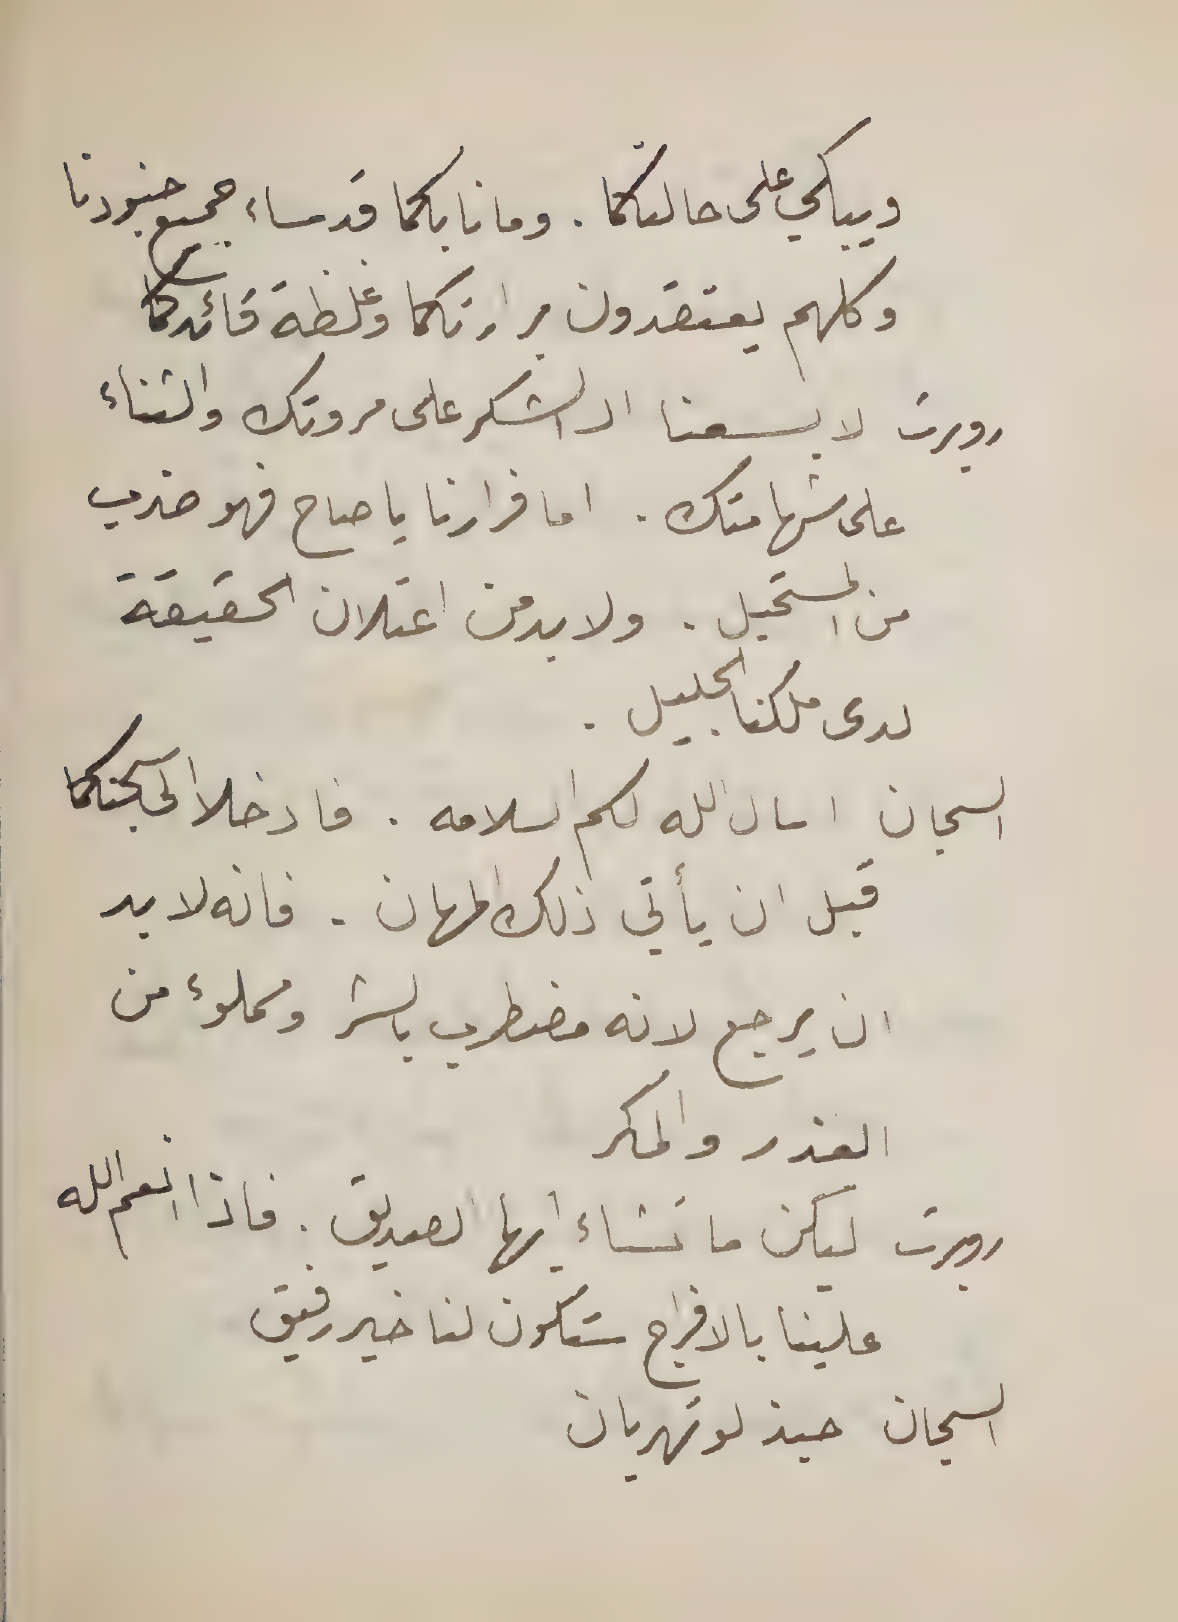 ويباكي على حالتكما . وما نابكما قد ساء جميع جنودنا
وكلهم يعتقدون برارتكما وغلظة قائدكما
روبرت لا يسعنا الا الشكر على مروتك والثناء
على شهامتك . اما فرارنا يا صاح فهو ضرب
من المستحيل . ولا بد من اعتلان الحقيقة
لدى ملكنا الجليل .
السجان اسال الله لكم السلامه . فادخلا الى سجنكما
قبل ان يأتي ذلك المهان . فانه لا بد
ان يرجع لانه مضطرب بالشر ومملوء من
الغدر والمكر
روبرت ليكن ما تشاء أيها الصديق . فاذا انعم الله
علينا بالافراج ستكون لنا خير رفيق
السجان حبذ لو تهربان